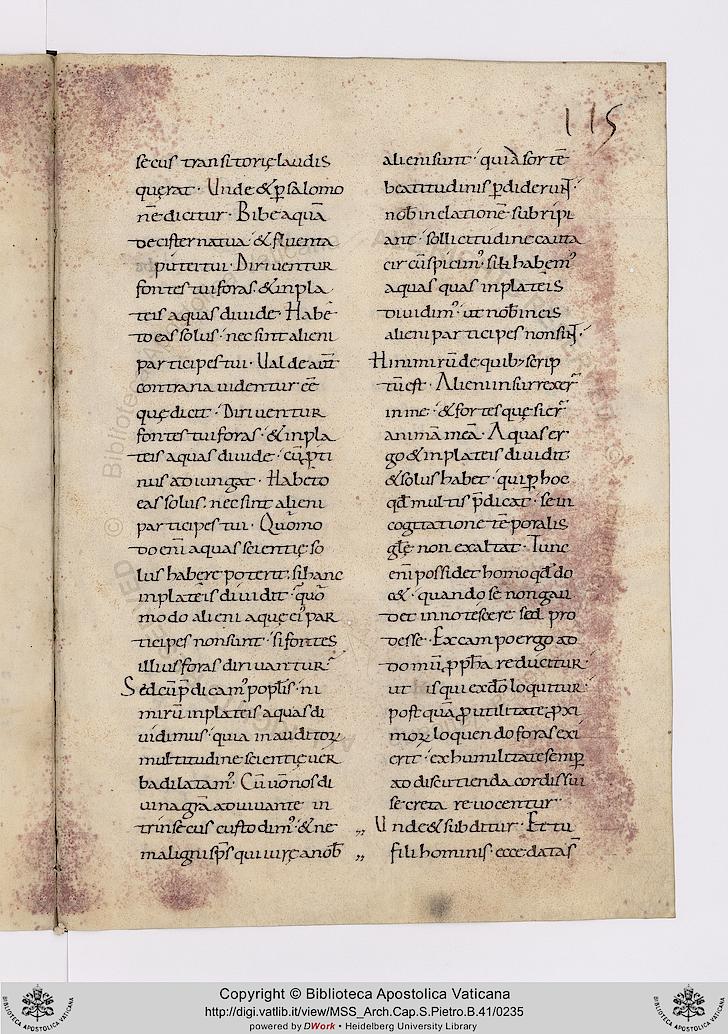 115
secus transitorię laudis
quęrat· Unde & p̄ salomo
nē dicitur· Bibe aquā
de cisterna tua· & fluenta
putei tui· Diriventur
fontes tui foras· & in pla
teis aquas divide· Habe
to eas solus· nec sint alieni
participes tui· Valde aūt
contraria videntur ēē
quę dicit· Diriventur
fontes tui foras· & in pla
teis aquas divide· cū p̄ti
nus adiungat· Habeto
eas solus· nec sint alieni
participes tui· Quomo
do enī aquas scientię so
lus habere poterit· si hanc
in plateis dividit· quo
modo alieni aquę ei' par
ticipes non sunt· si fontes
illius foras dirivantur
Sed cū p̄dicam' pop̄lis· ni
mirū in plateis aquas di
vidimus· quia in auditoꝝ
multitudine scientię ver
ba dilatam'· Cū v̄o nos di
vina grā adiuvante in
trinsecus custodim'· & ne
maligni sp̄s qui vitę a nob̄
alieni sunt· qui a sorte
beatitudinis p̄diderunt·
nob̄ in elationē subripi
ant· sollicitudine cauta
circūspicim'· sibi habem'
aquas quas in plateis
dividim'· ut nob̄ in eis
alieni participes non sint·
Hi nimirū de quibꝫ scrip
tū est· Alieni insurrexer̄
in me· & fortes quęsier̄
animā meā· Aquas er
go & in plateis dividit
& solus habet· qui p̄ hoc
qd̄ multis p̄dicat· se in
cogitatione tēporalis
gl̄ę non exaltat· Tunc
enī possidet homo qd̄ do
c&· quando se non gau
det innotescere sed pro
desse· Ex campo ergo ad
domū p̄pha reducitur·
ut is qui ex dō loquitur·
postquā p̄ utilitate p̄xi
moꝝ loquendo foras exi
erit· ex humilitate semp̄
ad discutienda cordis sui
secreta revocentur·
,, Unde & subditur· Et tu
,, fili hominis· ecce data s̄
Copyright © Biblioteca Apostolica Vaticana
http://digi.vatlib.it/view/MSS_Arch.Cap.S.Pietro.B.41/0235
powered by DWork • Heidelberg University Library